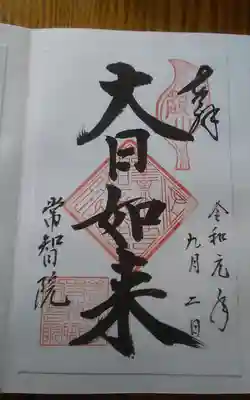 奉拝
令和元年
九月二日
大日如来
常智院